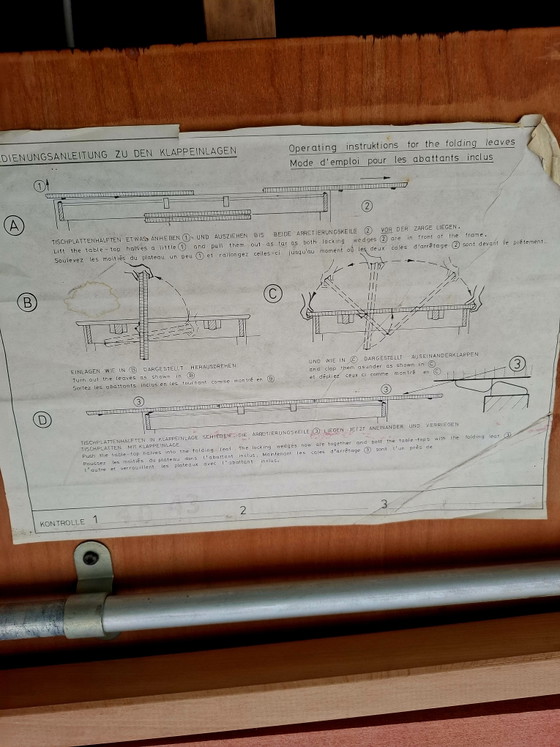 DIENUNGSANLEITUNG ZU DEN KLAPPEINLAGEN
Operating instruktions for the folding leaves
Mode d'emploi pour les abattants inclus
1
2
A
TISCHPLATTENHÄLFTEN ETWAS ANHEBEN 1 UND AUSZIEHEN BIS BEIDE ARRETIERUNGSKEILE 2 VOR DER ZARGE LIEGEN.
Lift the table-top halves a little 1 and pull them out as far as both locking wedges 2 are in front of the frame.
Soulevez les moitiés du plateau un peu 1 et rallongez celles-ci jusqu'au moment où les deux cales d'arrêtage 2 sont devant le piètement.
B
C
EINLAGEN WIE IN B DARGESTELLT HERAUSDREHEN
Turn out the leaves as shown in B
Sortez les abattants inclus en les tournant comme montré en B
UND WIE IN C DARGESTELLT AUSEINANDERKLAPPEN
and clap them asunder as shown in C
et dépliez ceux-ci comme montré en C
3
D
3
3
TISCHPLATTENHÄLFTEN IN KLAPPEINLAGE SCHIEBEN. DIE ARRETIERUNGSKEILE 3 LIEGEN JETZT ANEINANDER UND VERRIEGELN
TISCHPLATTEN MIT KLAPPEINLAGE.
Push the table-top halves into the folding leaf. the locking wedges now are together and bolt the table-tops with the folding leaf 3
Poussez les moitiés du plateau dans l'abattant inclus. Maintenant les cales d'arrêtage 3 sont l'un près de
l'autre et verrouillent les plateaux avec l'abattant inclus.
KONTROLLE 1
2
3